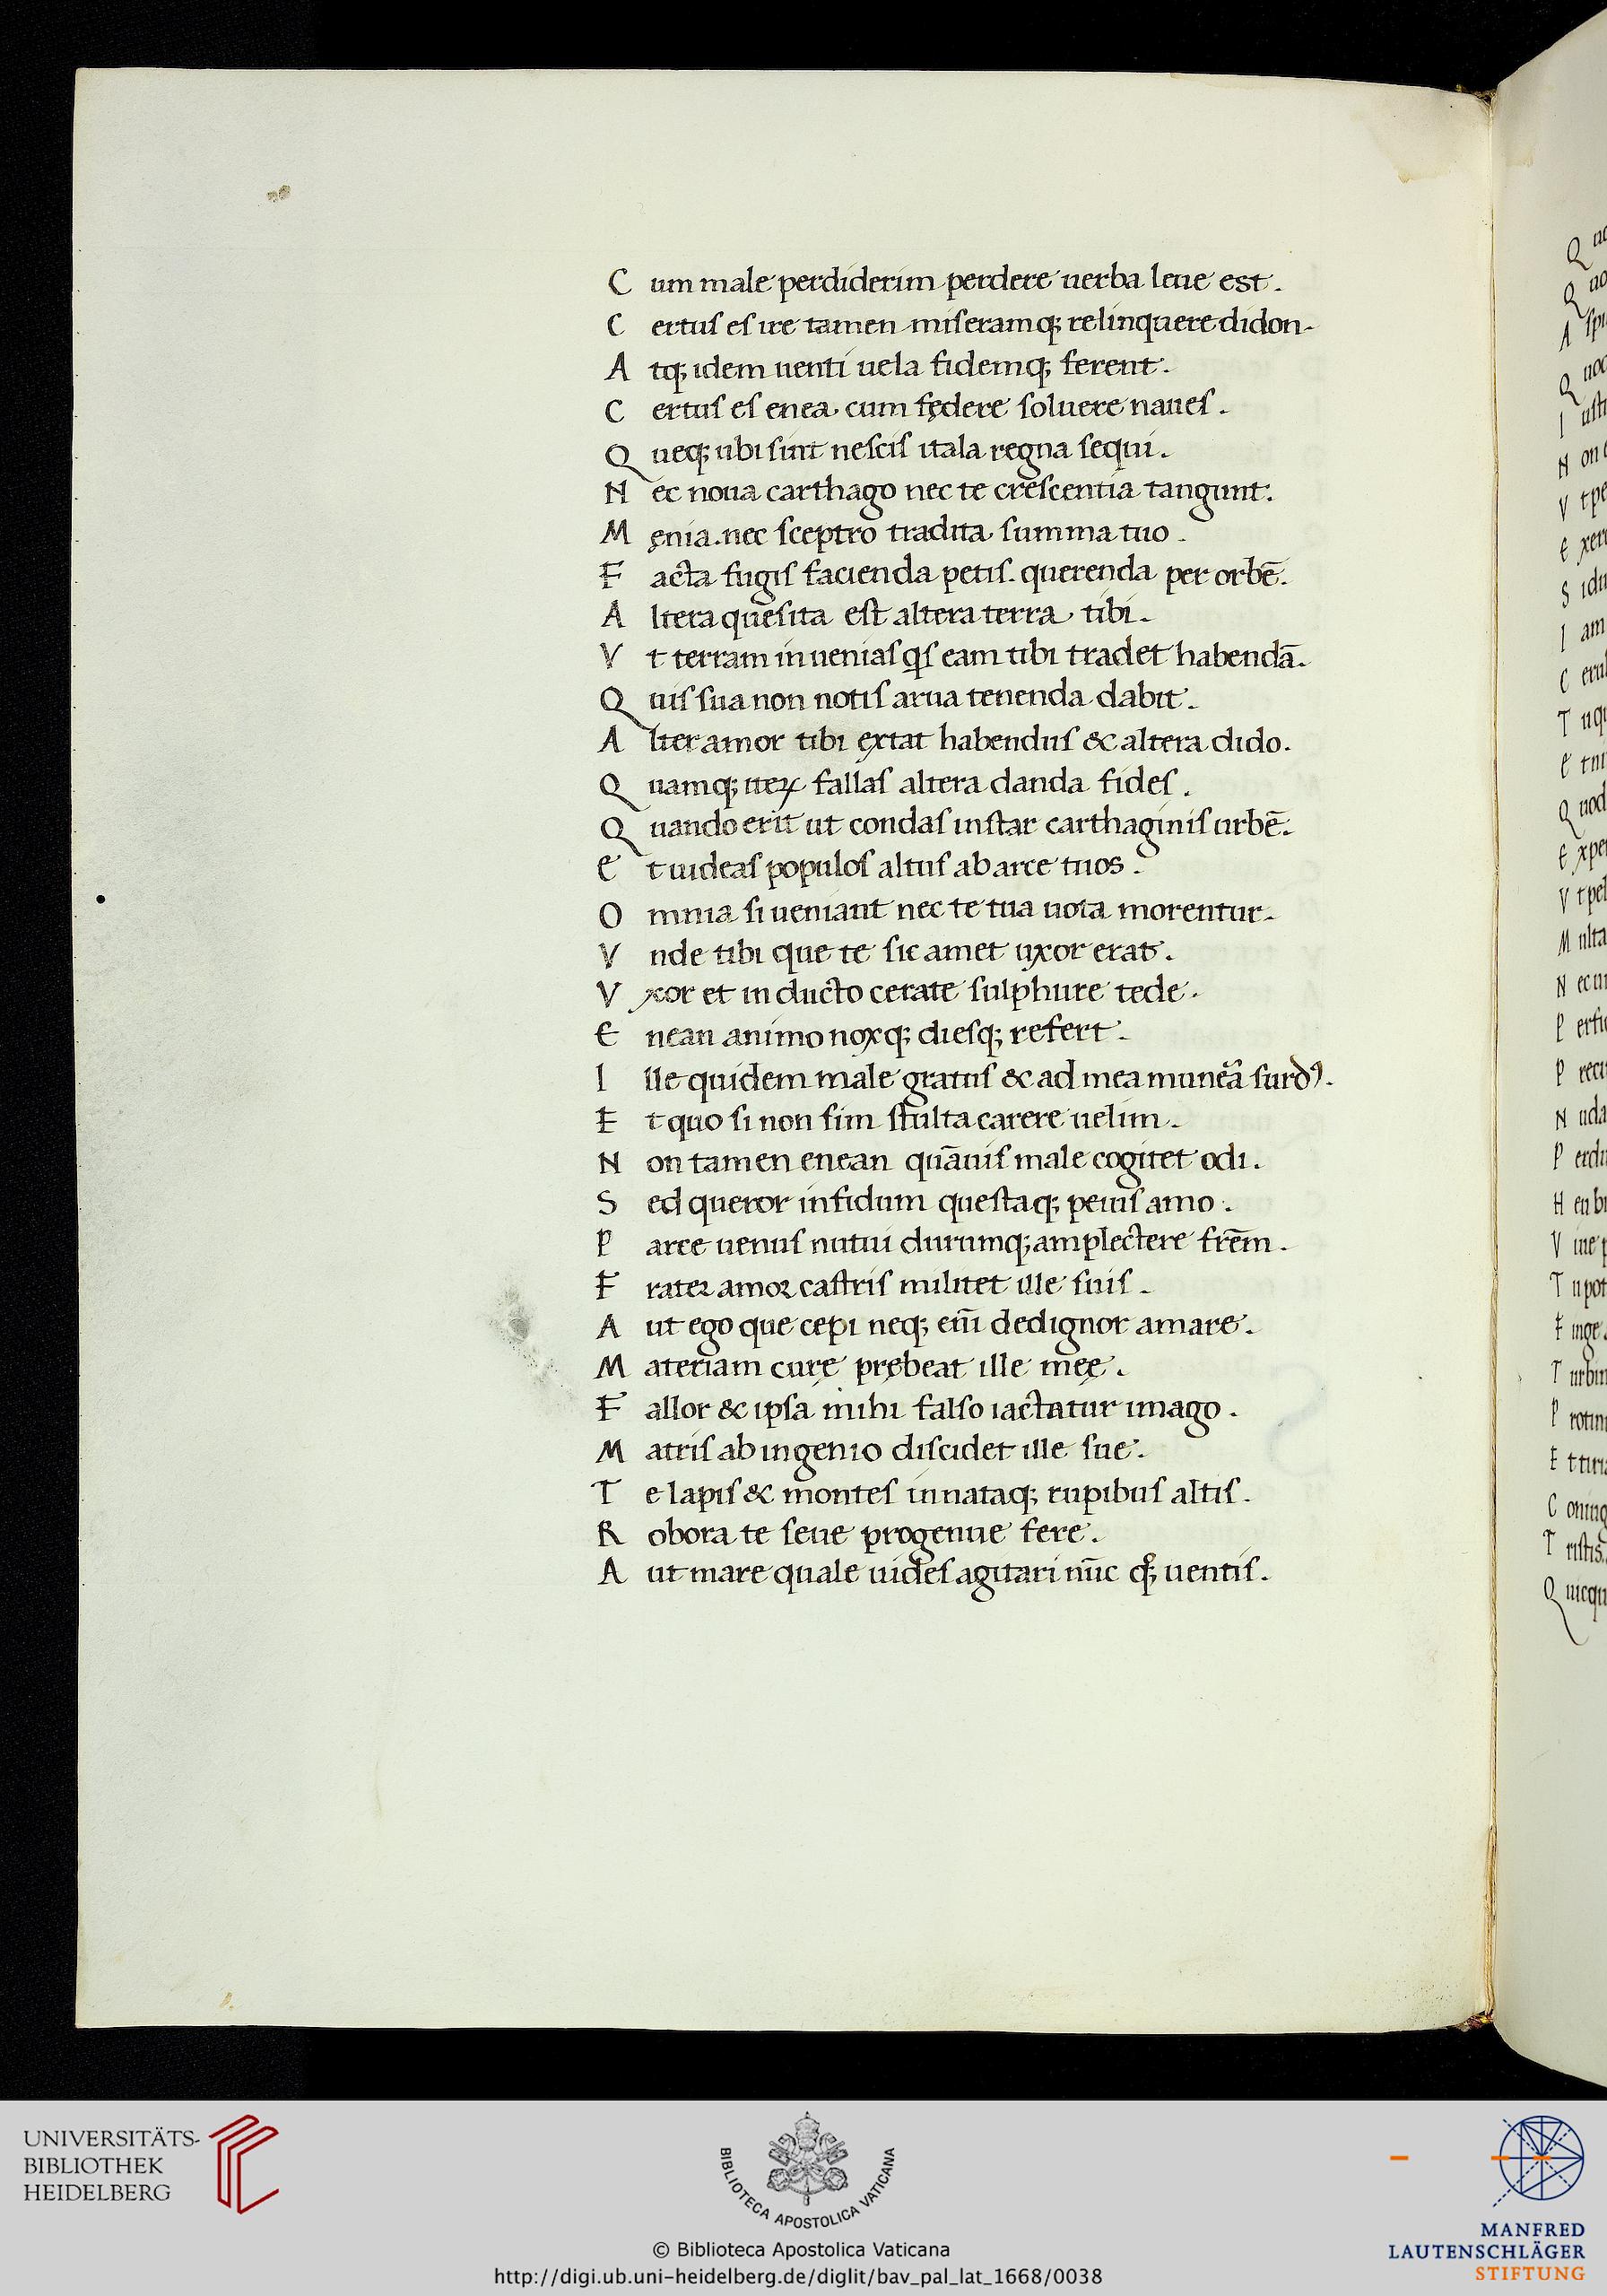 Cum male perdiderim perdere uerba leue est.
Certus es ire tamen miseramq; relinquere didon.
Atq; idem uenti uela fidemq; ferent.
Certus es enea cum fędere soluere naues.
Queq; ubi sint nescis itala regna sequi.
Nec noua carthago nec te crescentia tangunt.
Męnia. nec sceptro tradita summa tuo.
Facta fugis facienda petis. querenda per orbē.
Altera quesita est altera terra tibi.
Vt terram inuenias qs eam tibi tradet habendā.
Quis sua non notis arua tenenda dabit.
Alter amor tibi extat habendus & altera dido.
Quamq; iteꝝ fallas altera danda fides.
Quando erit ut condas instar carthaginis urbē.
Et uideas populos altus ab arce tuos.
Omnia si ueniant nec te tua uota morentur.
Vnde tibi que te sic amet uxor erat.
Vxor et inducto cerate sulphure tede.
Enean animo noxq; diesq; refert.
Ille quidem male gratus & ad mea munēa surdꝰ.
Et quo si non sim stulta carere uelim.
Non tamen enean quāuis male cogitet odi.
Sed queror infidum questaq; peius amo.
Parce uenus nutui durumq; amplectere frēm.
Frater amor castris militet ille suis.
Aut ego que cepi neq; eni̅ dedignor amare.
Materiam curę prębeat ille meę.
Fallor & ipsa mihi falso iactatur imago.
Matris ab ingenio discidet ille sue.
Te lapis & montes innataq; rupibus altis.
Robora te seue progenue fere.
Aut mare quale uides agitari nūc qꝫ uentis.
UNIVERSITÄTS-
BIBLIOTHEK
HEIDELBERG
BIBLIOTECA APOSTOLICA VATICANA
© Biblioteca Apostolica Vaticana
http://digi.ub.uni-heidelberg.de/diglit/bav_pal_lat_1668/0038
MANFRED
LAUTENSCHLÄGER
STIFTUNG